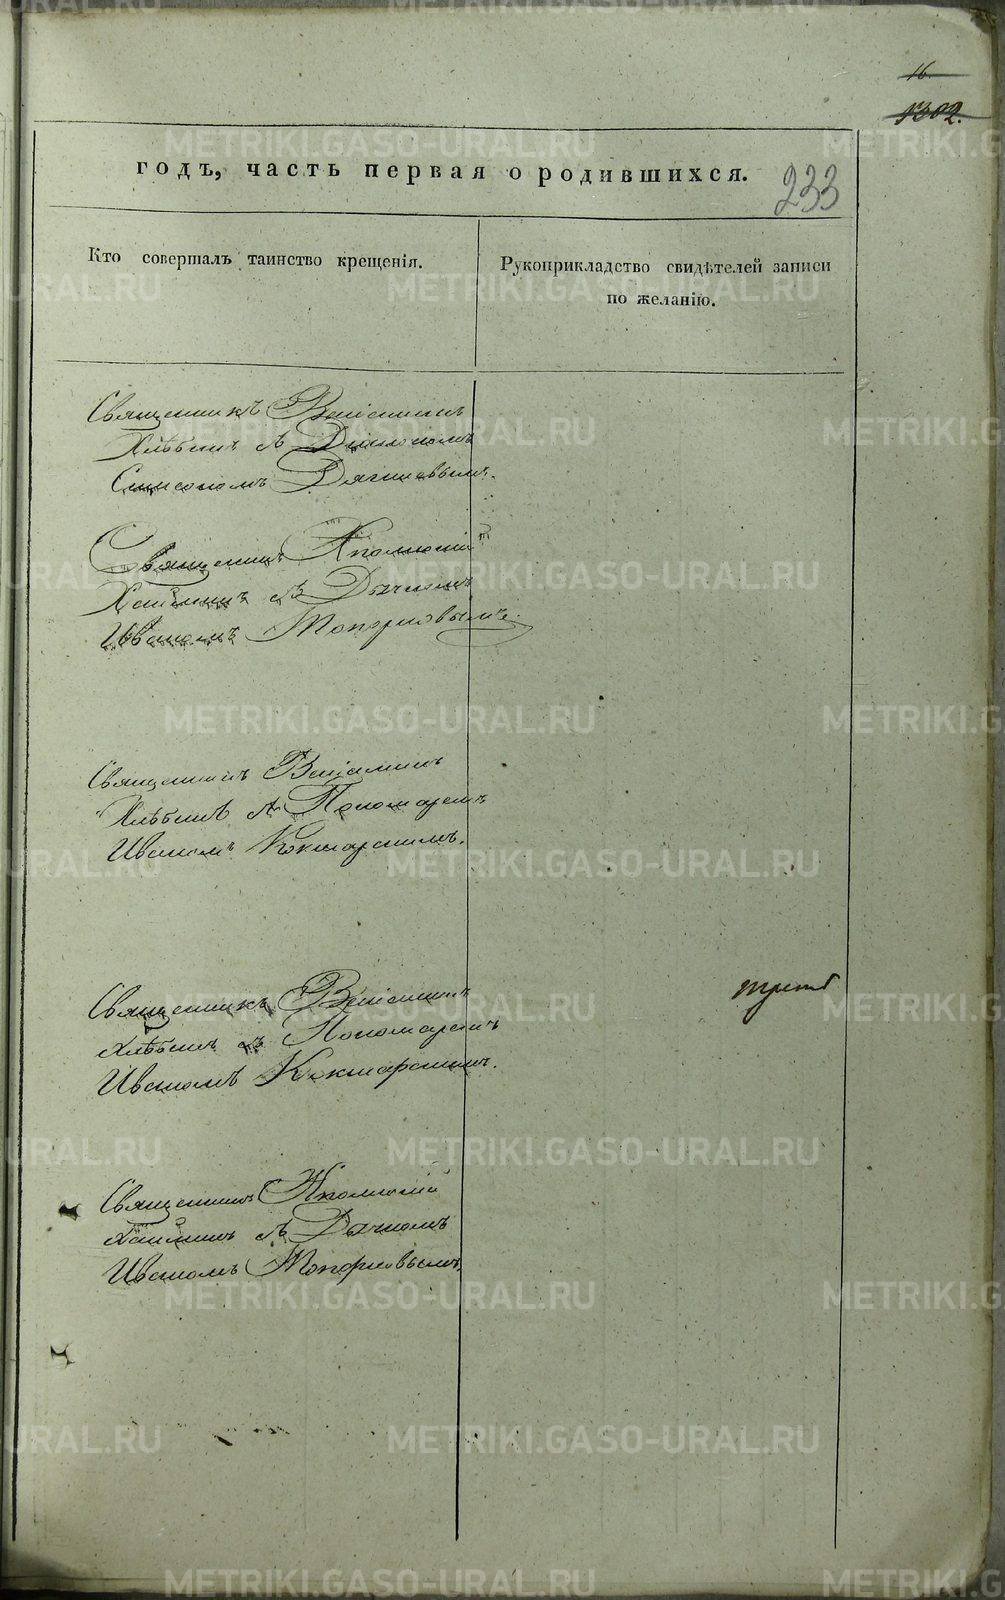 16.
1302.
233
годъ, часть первая о родившихся.
Кто совершалъ таинство крещенія.
Рукоприкладство свидѣтелей записи
по желанію.
Священникъ Веніаминъ
Хлѣбинъ съ Діакономъ
Симеономъ
Священникъ Аполлоній
съ Дьячкомъ
Иваномъ Топорковымъ.
Священникъ Веніаминъ
Хлѣбинъ съ Пономаремъ
Иваномъ Кокшарскимъ.
Священникъ Веніаминъ
Хлѣбинъ съ Пономаремъ
Иваномъ Кокшарскимъ.
Священникъ Аполлоній
съ Дьячкомъ
Иваномъ Топорковымъ.
METRIKI.GASO-URAL.RU